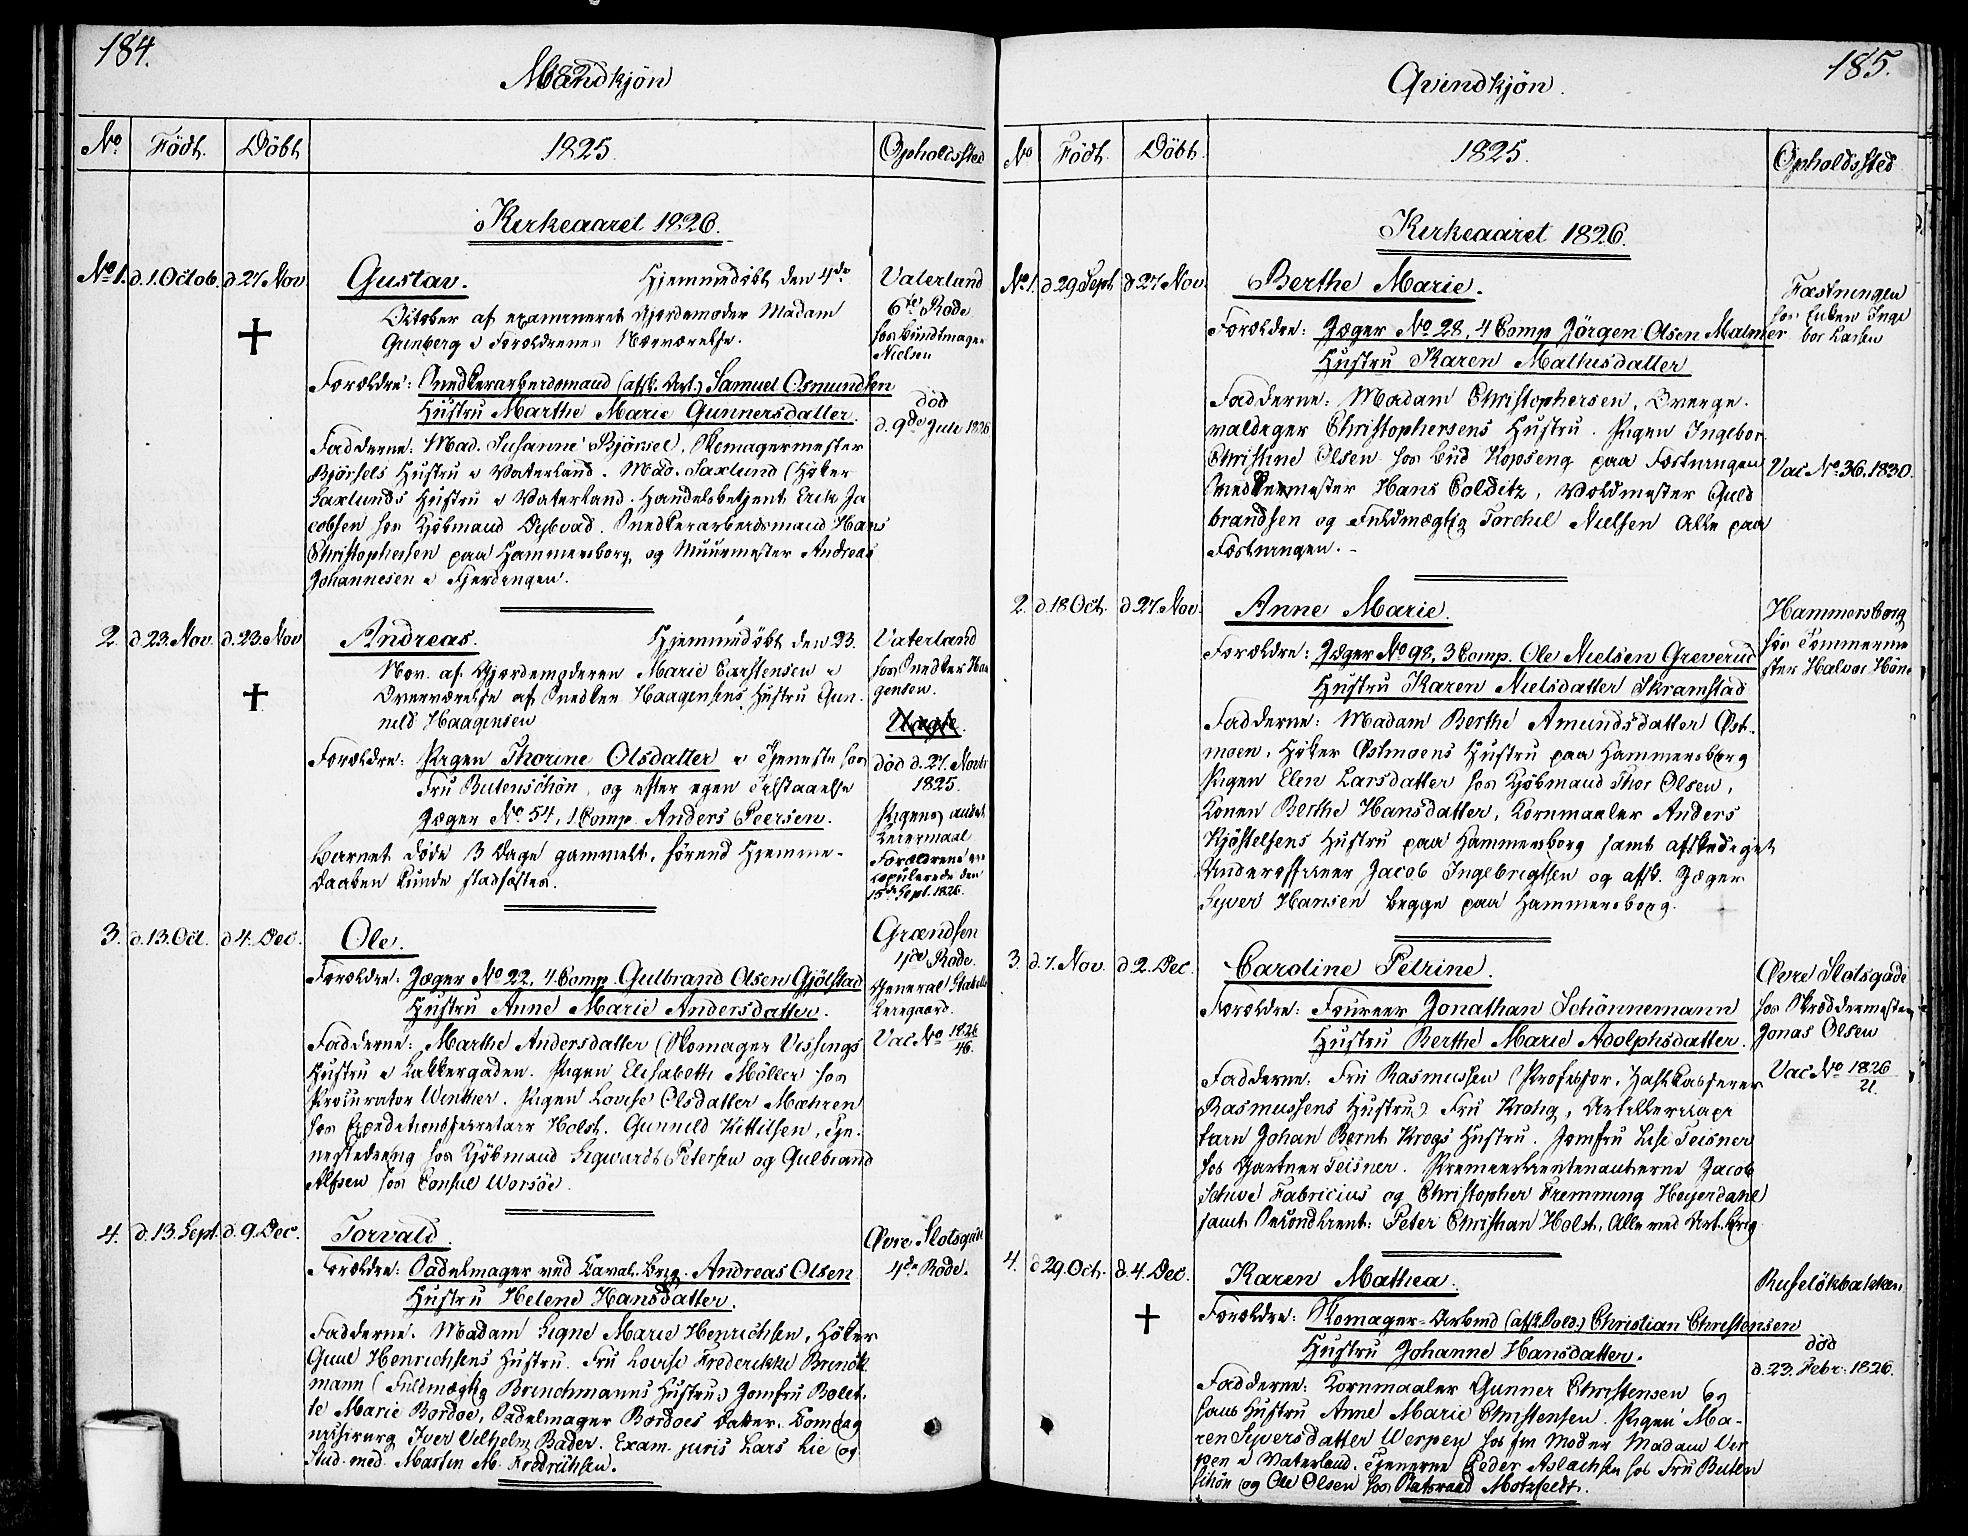 184.
Mandkjön
No. Födt. Döbt 1825. Opholdssted
Kirkeaaret 1826.
No 1. d. 1. Octob. d 27 Nov. Gustav. Hjemmedöbt den 4de
October af examineret Gjordemoder Madam
Grenberg i Forældrenes Nærværelse.
Forældre: Snedkerarbeidsmand (afsk. Art.) Samuel Osmundsen
Hustru Marthe Marie Gunnersdatter.
Fadderne: Mad. Susanne Bjørsel, Skomagermester
Bjørsels Hustru i Vaterland. Mad. Saxlund (Høker
Saxlunds Hustru i Vaterland. Handelsbetjent Erik Ja
cobsen hos Kjøbmand Dybvad. Snedkerarbeidsmand Hans
Christophersen paa Hammersborg, og Muurmester Andreas
Johannesen i Fjerdingen.
Vaterland
6te Rode
hos Bundtmager
Nielsen
död
d. 9de Juli 1826
2. d 23. Nov. d. 23. Nov Andreas. Hjemmedöbt den 23.
Nov. af Gjordemoderen Marie Carstensen i
Overværelse af Snedker Haagensens Hustru Gun-
neld Haagensen
Forældre: Pigen Thorine Olsdatter i Tjeneste hos
Fru Butenschön, og efter egen Tilstaaelse
Jæger No 54, 1 Comp. Anders Peersen.
Barnet döde 3 Dage gammelt, förend Hjemme-
Daaben kunde stadfæstes.
Vaterland
hos Snedker Haa
gensen.
Uægte.
död d. 27. Novbr
1825.
Pigens andet
Leiermaal
Forældrene ere
copulerede den
15de Sept. 1826.
3. d. 13. Oct. d 4. Dec. Ole.
Forældre: Jæger No 22, 4 Comp. Gulbrand Olsen Gjölstad
Hustru Anne Marie Andersdatter.
Fadderne: Marthe Andersdatter (Skomager Vissings
Hustru i Lakkergaden. Pigen Elisabeth Möller hos
Procurator Winther. Pigen Lovise Olsdatter Mæhren
hos Expeditionssecretair Holst. Gunneld Kittilsen, Tje-
nestedreng hos Kjøbmand Sigwardt Petersen og Gulbrand
Alfsen hos Consul Worsöe.
Grændsen
4de Rode.
General Stabells
Leiegaard.
Vac No 1826
46.
4. d. 13. Sept. d. 9. Dec. Torvald.
Forældre: Sadelmager ved Caval. Brig. Andreas Olsen
Hustru Helene Hansdatter.
Fadderne. Madam Signe Marie Henrichsen, Høker
Henrichsens Hustru. Fru Lovise Frederikke Brinck
mann (Fuldmægtig Brinchmanns Hustru) Jomfru Bolet-
te Marie Bordoe, Sadelmager Bordoes Datter.
Iver Vilhelm Bader. Exam. juris Lars Lie og
Stud. med. Martin M. Fredrichsen.
Øvre Slotsgade
4de Rode.
185.
Qvindkjön.
No Födt. Döbt. 1825. Opholdssted
Kirkeaaret 1826.
No 1. d 29 Sept d 27 Nov. Berthe Marie.
Forældre: Jæger No 28, 4 Comp Jörgen Olsen Malmer
Hustru Karen Mathisdatter
Fadderne: Madam Christophersen, Overge-
valdiger Christophersens Hustru. Pigen Ingebor
Christine Olsen hos Bud Kopseng paa Fæstningen
Snedkermester Hans Colditz, Voldmester Guld
brandsen og Fuldmægtig Torchil Nielsen Alle paa
Fæstningen.
Fæstningen
hos Enken Inge
bor Larsen
Vac No. 36, 1830.
2. d. 18 Oct. d 27. Nov. Anne Marie.
Forældre: Jæger No 98, 3 Comp. Ole Nielsen Greverud
Hustru Karen Nielsdatter Skramstad
Fadderne: Madam Berthe Amundsdatter Øst-
moen, Høker Østmoens Hustru paa Hammersborg
Pigen Elen Larsdatter hos Kjøbmand Thor Olsen,
Konen Berthe Hansdatter, Kornmaaler Anders
Kjöstelsens Hustru paa Hammersborg samt afskediget
Underofficeer Jacob Ingebrigtsen og afsk. Jæger
Syver Hansen begge paa Hammersborg.
Hammersborg
hos Tømmerme
ster Halvor Höne
3. d. 7. Nov. d 2. Dec. Caroline Petrine.
Forældre: Foureer Jonathan Schönnemann
Hustru Berthe Marie Adolphsdatter.
Fadderne. Fru Rasmussen (Professor,
Rasmussens Hustru) Fru Krohg, Artilleriecapi
tain Johan Bernt Krogs Hustru. Jomfru Lise Teisner
hos Gartner Teisner. Premierlieutenanterne Jacob
Schive Fabricius og Christopher Fremming Heyerdahl
samt Secondlieut: Peter Christian Holst, Alle ved Art. Brig.
Øvre Slotsgade
hos Skræddermester
Jonas Olsen
Vac No 1826
21.
4. d 29. Oct. d. 4. Dec. Karen Mathea.
Forældre: Skomager-Arbeid (afsk. Sold.) Christian Christensen
Hustru Johanne Hansdatter.
Fadderne: Kornmaaler Gunner Christensen og
hans Hustru Anne Marie Christensen. Pigen Ma-
ren Syversdatter Werpen hos sin Moder Madam Ver
pen i Vaterland. Tjenerne Peder Aslachsen hos Fru Buten
schön og Ole Olsen hos Statsraad Motzfeldt.
Ruseløkbakken
död
d. 23. Febr. 1826.